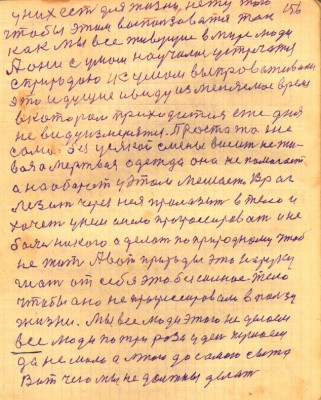 156
у них есть для жизни, нету того
чтобы этим воспользоватся так
как мы все живущие в мире люди
А они с умом научились встречать
с природою и с умом выпроваживали
это идущие в виду изменяемое время
в котором приходится еже дня
не виду изменятся. Проста то вне
сама без усякой смены висит не жи-
вая а мертвая одежда она не помогает
а наоборот у этом мешает. Враг
лезит через нея прилазит в тело и
хочет у нем смело прогрессировать и не
боясь никого а делат по природному чтоб
не жит А вот природы это на руку
гнат от себя это бессильное тело
чтобы ано не прогрессировала в пользу
жизни. Мы все люди этого не делаем
все люди по три раза у ден кушаем
да не мало а много до самого сыта
Вот чего мы не должны делат